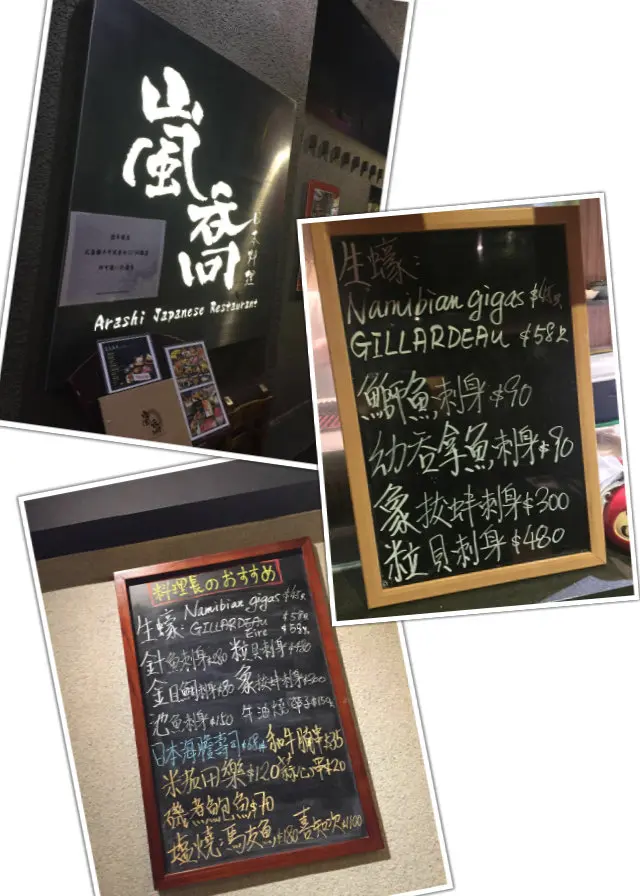 嵐吞
日本料理
Arashi Japanese Restaurant
生蠔:
Namibian gigas $45只
GILLARDEAU $58只
鰤魚刺身 $90
幼吞拿魚刺身 $90
象拔蚌刺身 $300
粒貝刺身 $480
料理長のおすすめ
生蠔: Namibian gigas $45只
GILLARDEAU $58只
Eire $59只
針魚刺身 粒貝刺身 $480
金目鯛刺身 象拔蚌刺身 $300
池魚刺身 $150 牛油燒
日本海膽壽司 和牛 串
米茄田樂 $120 蒜心串 $20
磯煮鮑魚 $70
塩燒:馬友魚 $180 喜知次